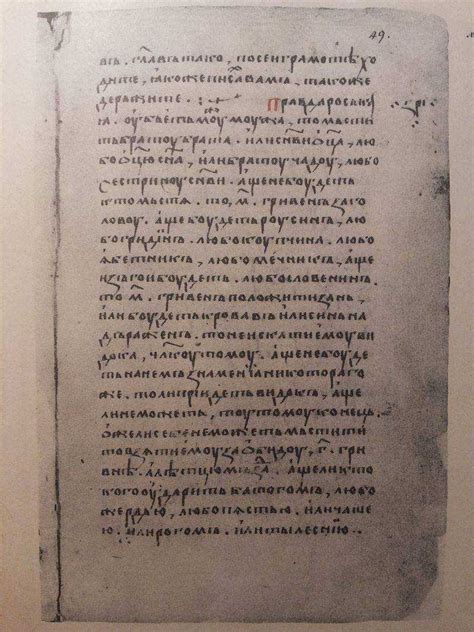 49.
въ, главъ тако, по сеи грамотѣ хо
дите, якоже писа вамъ, такоже
держите. Правда роськаѧ
а. оубьеть моужь моужа, то мьстит
ь братоу брата, или сынови ѡца, лю
бо ѡцю сна, или братоучадоу, любо
сестриноу снви. аще не боудеть
кто мьстѧ. то, м҃. гривенъ за го
ловоу. аще боудеть роусинъ, лю
бо гридинъ. любо коупчина. любо
ѧбетникъ, любо мечникъ, аще
изъгои боудеть, любо словенинъ.
то м҃. гривенъ положити за нь,
или боудеть кровавъ или синь на
дъраженъ. то не искати емоу ви
дока, члкоу томоу. аще не боуде
ть на немъ знаменіа никотораго
же. то ли пріидеть видокъ, аще
ли не можеть, тоу томоу конець.
ѡже ли себе не можеть мьстити
то взѧти емоу за ѡбидоу, г҃. гри
внѣ. а лѣтцю мъзда. аще ли кто
кого оударить батогомъ, любо
жердью, любо пѧстью, или чаше
ю. или рогомъ. или тылеснію.